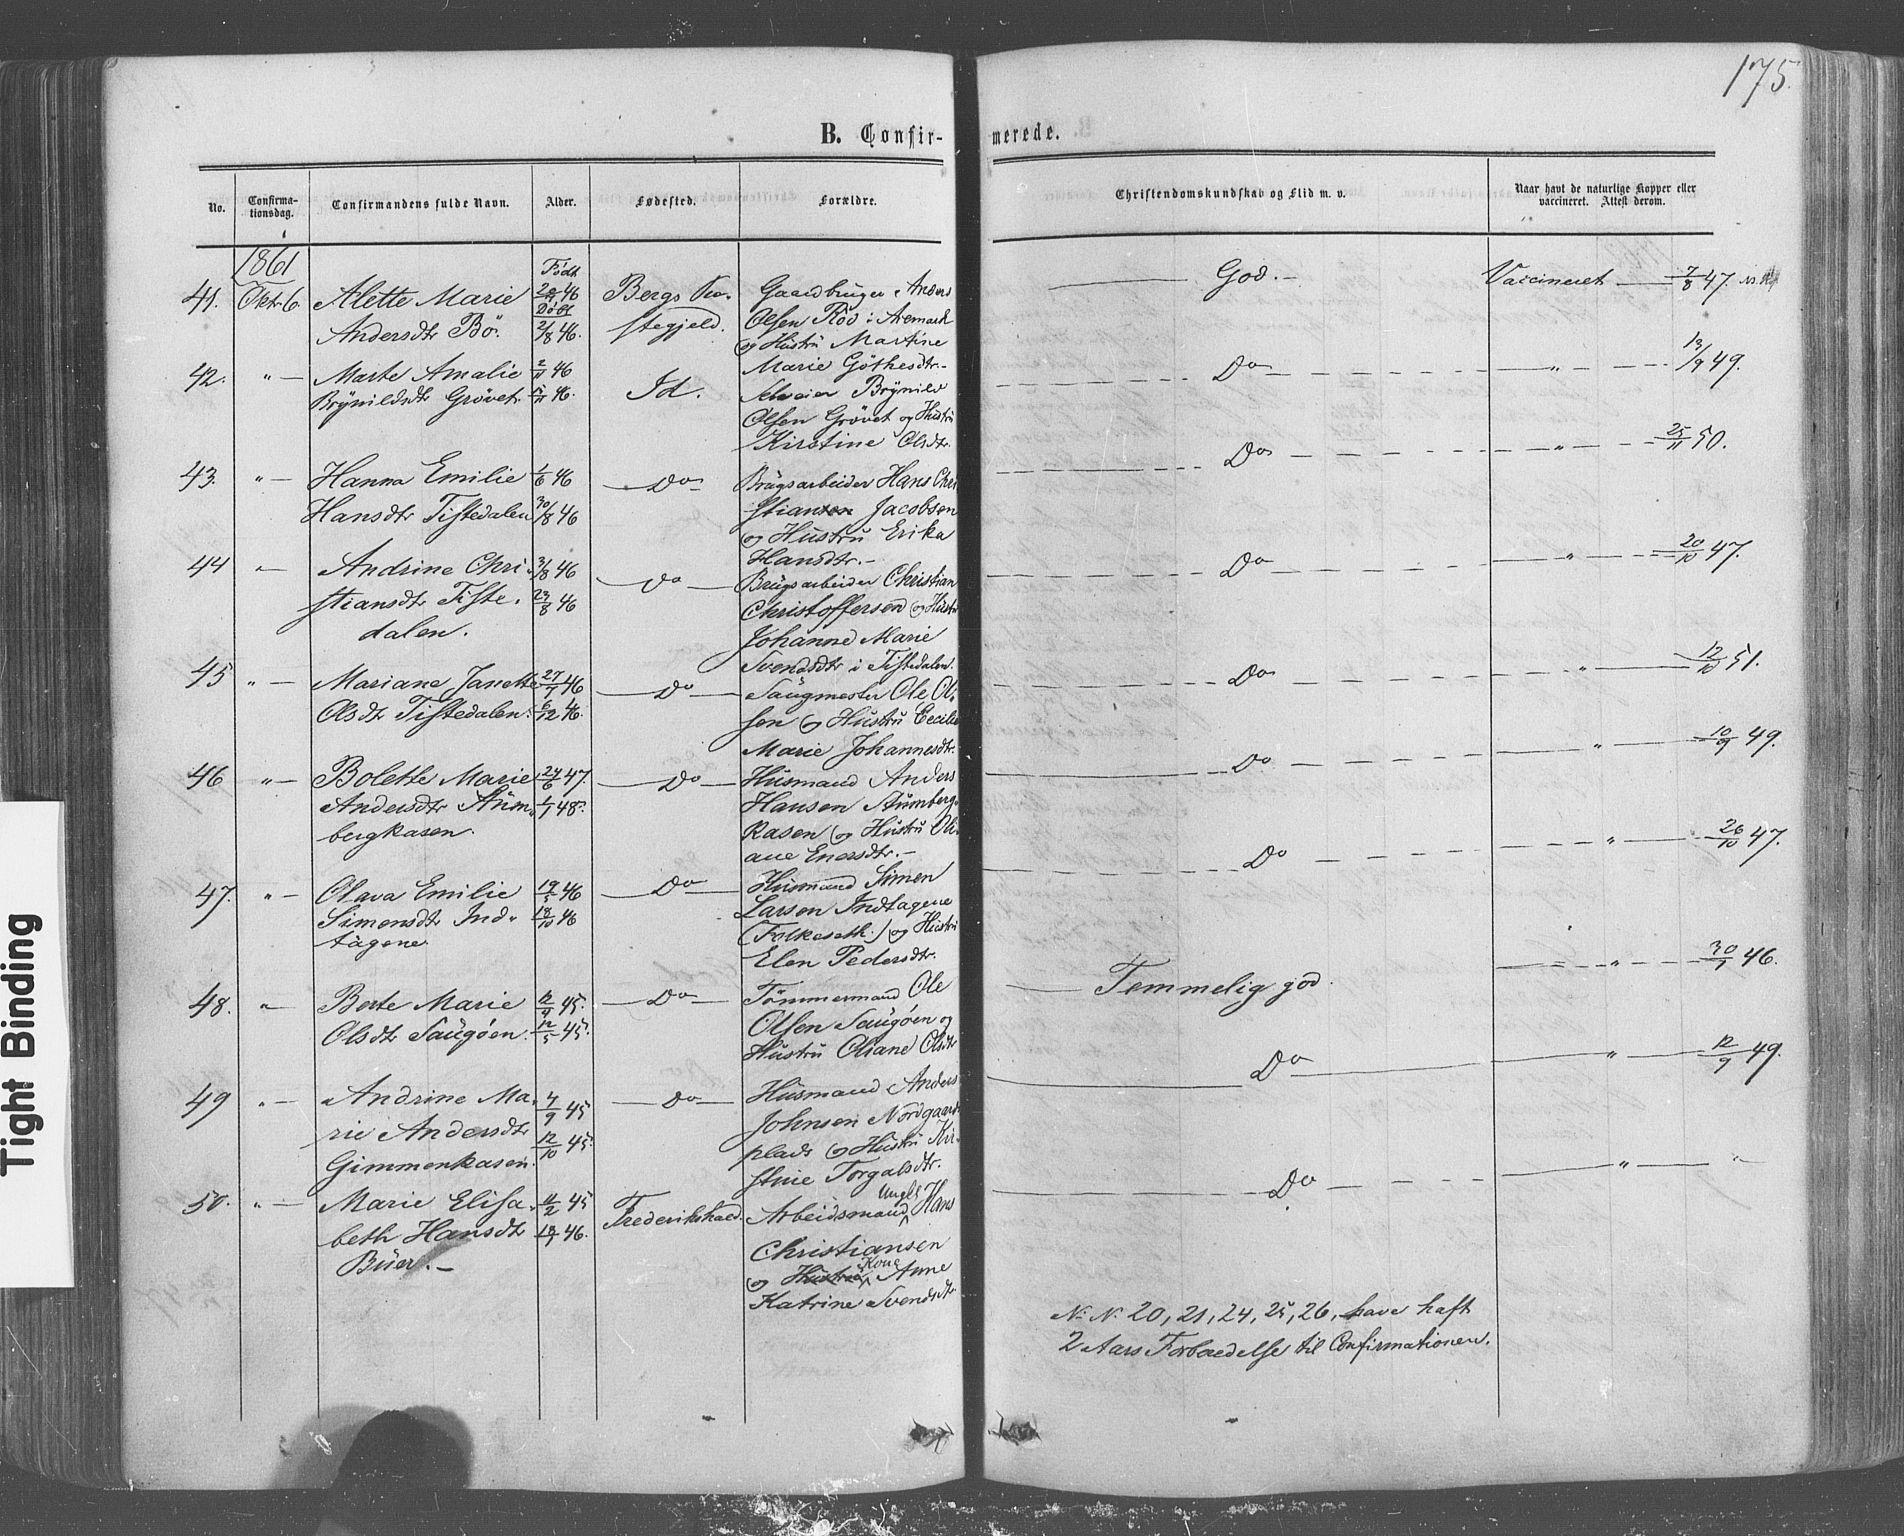 175.
B. Confir- merede.
No. Confirma-tionsdag. Confirmandens fulde Navn. Alder. Fødested. Forældre. Christendomskundskab og Flid m. v. Naar havt de naturlige Kopper eller vaccineret. Attest derom.
1861 Født
41. Oktr 6. Alette Marie 46 Bergs Præ- Gaardbruger Anders God. Vaccineret 7/8 47
Døbt
Andersdtr Bö. 2/8 46. stegjeld. Olsen Röd i Aremark
og Hustru Martine
Marie Göthesdtr
42. " Marte Amalie 2/11 46 Id. Selveier Brynild Do " 13/9 49.
Brynildsdtr Grövet 46. Olsen Grövet og Hustru
Kirstine Olsdtr
43. " Hanna Emilie 1/6 46 Do Brugsarbeider Hans Chri Do " 25/11 50.
Hansdtr Tistedalen 30/8 46 stiansen Jacobsen
og Hustru Erika
Hansdtr.
44 " Andrine Chri- 3/8 46 Do Brugsarbeider Christian Do " 20/10 47.
stiansdtr Tiste- 23/8 46 Christoffersen og Hustru
dalen. Johanne Marie
Svendsdtr i Tistedalen.
45 " Mariane Janette 27/7 46 Do Saugmester Ole Ol- Do " 12/10 51.
Olsdtr Tistedalen. 6/12 46. sen og Hustru Cecilie
Marie Johannesdtr.
46 " Bolette Marie 24/6 47. Do Husmand Anders Do " 10/9 49.
Andersdtr Stum- 1/1 48. Hansen Stumberg-
bergkasen. kasen og Hustru Oli-
ane Enersdtr.
47. " Olava Emilie 19/5 46 Do Husmand Simen Do " 26/10 47.
Simensdtr Ind- 18/10 46 Larsen Indtagene
tagene. (Folkeseth.) og Hustru
Elen Pedersdtr.
48. " Berte Marie 12/4 45. Do Tömmermand Ole Temmelig god. " 30/7 46.
Olsdtr Saugöen. 12/5 45. Olsen Saugöen og
Hustru Oliane Olsdtr
49 " Andrine Ma- 4/9 45 Do Husmand Anders Do " 12/9 49.
rie Andersdtr 12/10 45. Johnsen Nordgaards
Gimmenkasen. plads og Hustru Kir-
stine Torgalsdtr.
50. " Marie Elisa- 11/2 45 Frederikshald. Arbeidsmand Ungkl Hans Do " "
beth Hansdtr 18/1 46. Christiansen
Buer. og Hustru Kone Anne
Katrine Svendsdtr
N. N. 20, 21, 24, 25, 26, have haft
2 Aars Forberedelse til Confirmationen.
Tight Binding